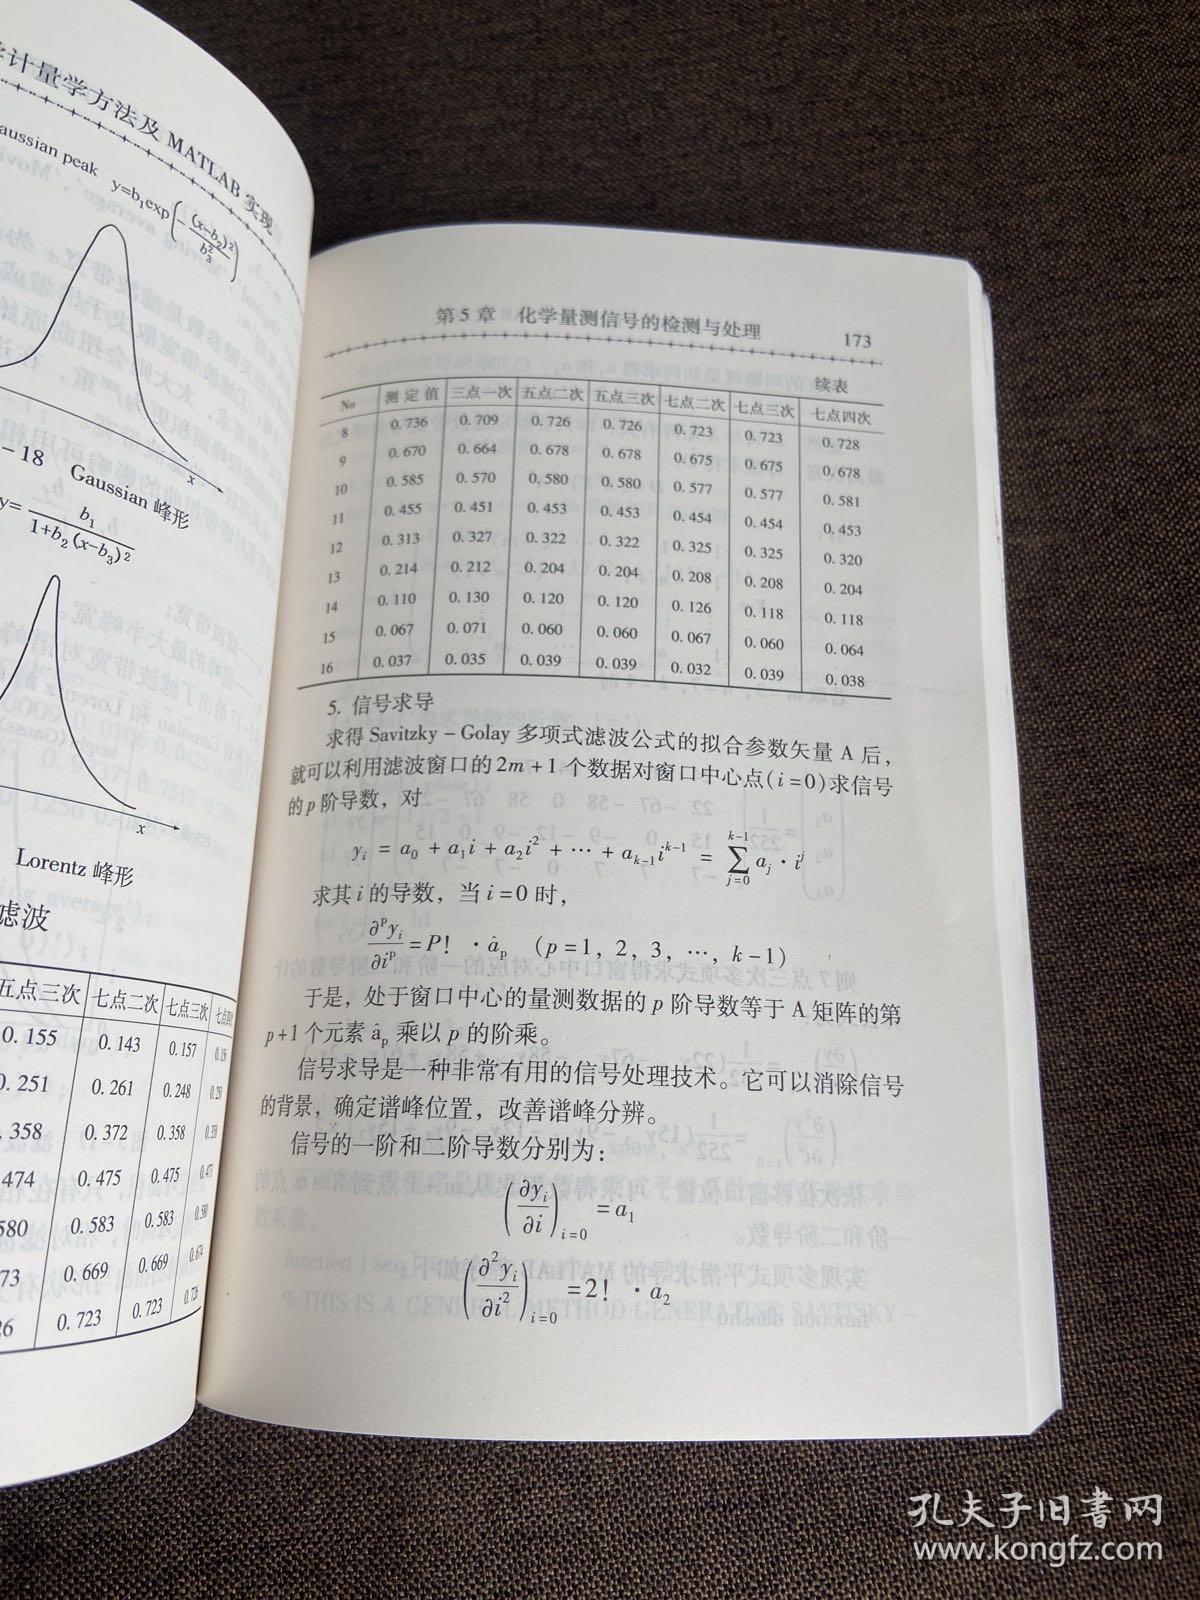 计量学方法及 MATLAB 实现
aussian peak y=b₁exp(-(x-b₂)²/b₃²)
x
-18 Gaussian 峰形
y=b₁/(1+b₂(x-b₃)²)
x
Lorentz 峰形
滤波
五点三次 七点二次 七点三次
0.155 0.143 0.157
0.251 0.261 0.248
.358 0.372 0.358
474 0.475 0.475
580 0.583 0.583
73 0.669 0.669 0.674
26 0.723 0.723 0.726
第 5 章 化学量测信号的检测与处理 173
续表
№ 测定值 三点一次 五点二次 五点三次 七点二次 七点三次 七点四次
8 0.736 0.709 0.726 0.726 0.723 0.723 0.728
9 0.670 0.664 0.678 0.678 0.675 0.675 0.678
10 0.585 0.570 0.580 0.580 0.577 0.577 0.581
11 0.455 0.451 0.453 0.453 0.454 0.454 0.453
12 0.313 0.327 0.322 0.322 0.325 0.325 0.320
13 0.214 0.212 0.204 0.204 0.208 0.208 0.204
14 0.110 0.130 0.120 0.120 0.126 0.118 0.118
15 0.067 0.071 0.060 0.060 0.067 0.060 0.064
16 0.037 0.035 0.039 0.039 0.032 0.039 0.038
5. 信号求导
求得 Savitzky-Golay 多项式滤波公式的拟合参数矢量 A 后,
就可以利用滤波窗口的 2m+1 个数据对窗口中心点(i=0)求信号
的 p 阶导数，对
yᵢ = a₀ + a₁i + a₂i² + ⋯ + aₖ₋₁iᵏ⁻¹ = ∑ⱼ₌₀ᵏ⁻¹ aⱼ · iʲ
求其 i 的导数，当 i=0 时，
∂ᴾyᵢ/∂iᴾ = P! · âₚ (p=1, 2, 3, ⋯, k-1)
于是，处于窗口中心的量测数据的 p 阶导数等于 A 矩阵的第
p+1 个元素 âₚ 乘以 p 的阶乘。
信号求导是一种非常有用的信号处理技术。它可以消除信号
的背景，确定谱峰位置，改善谱峰分辨。
信号的一阶和二阶导数分别为：
(∂yᵢ/∂i)ᵢ₌₀ = a₁
(∂²yᵢ/∂i²)ᵢ₌₀ = 2! · a₂
孔夫子旧书网
www.kongfz.com